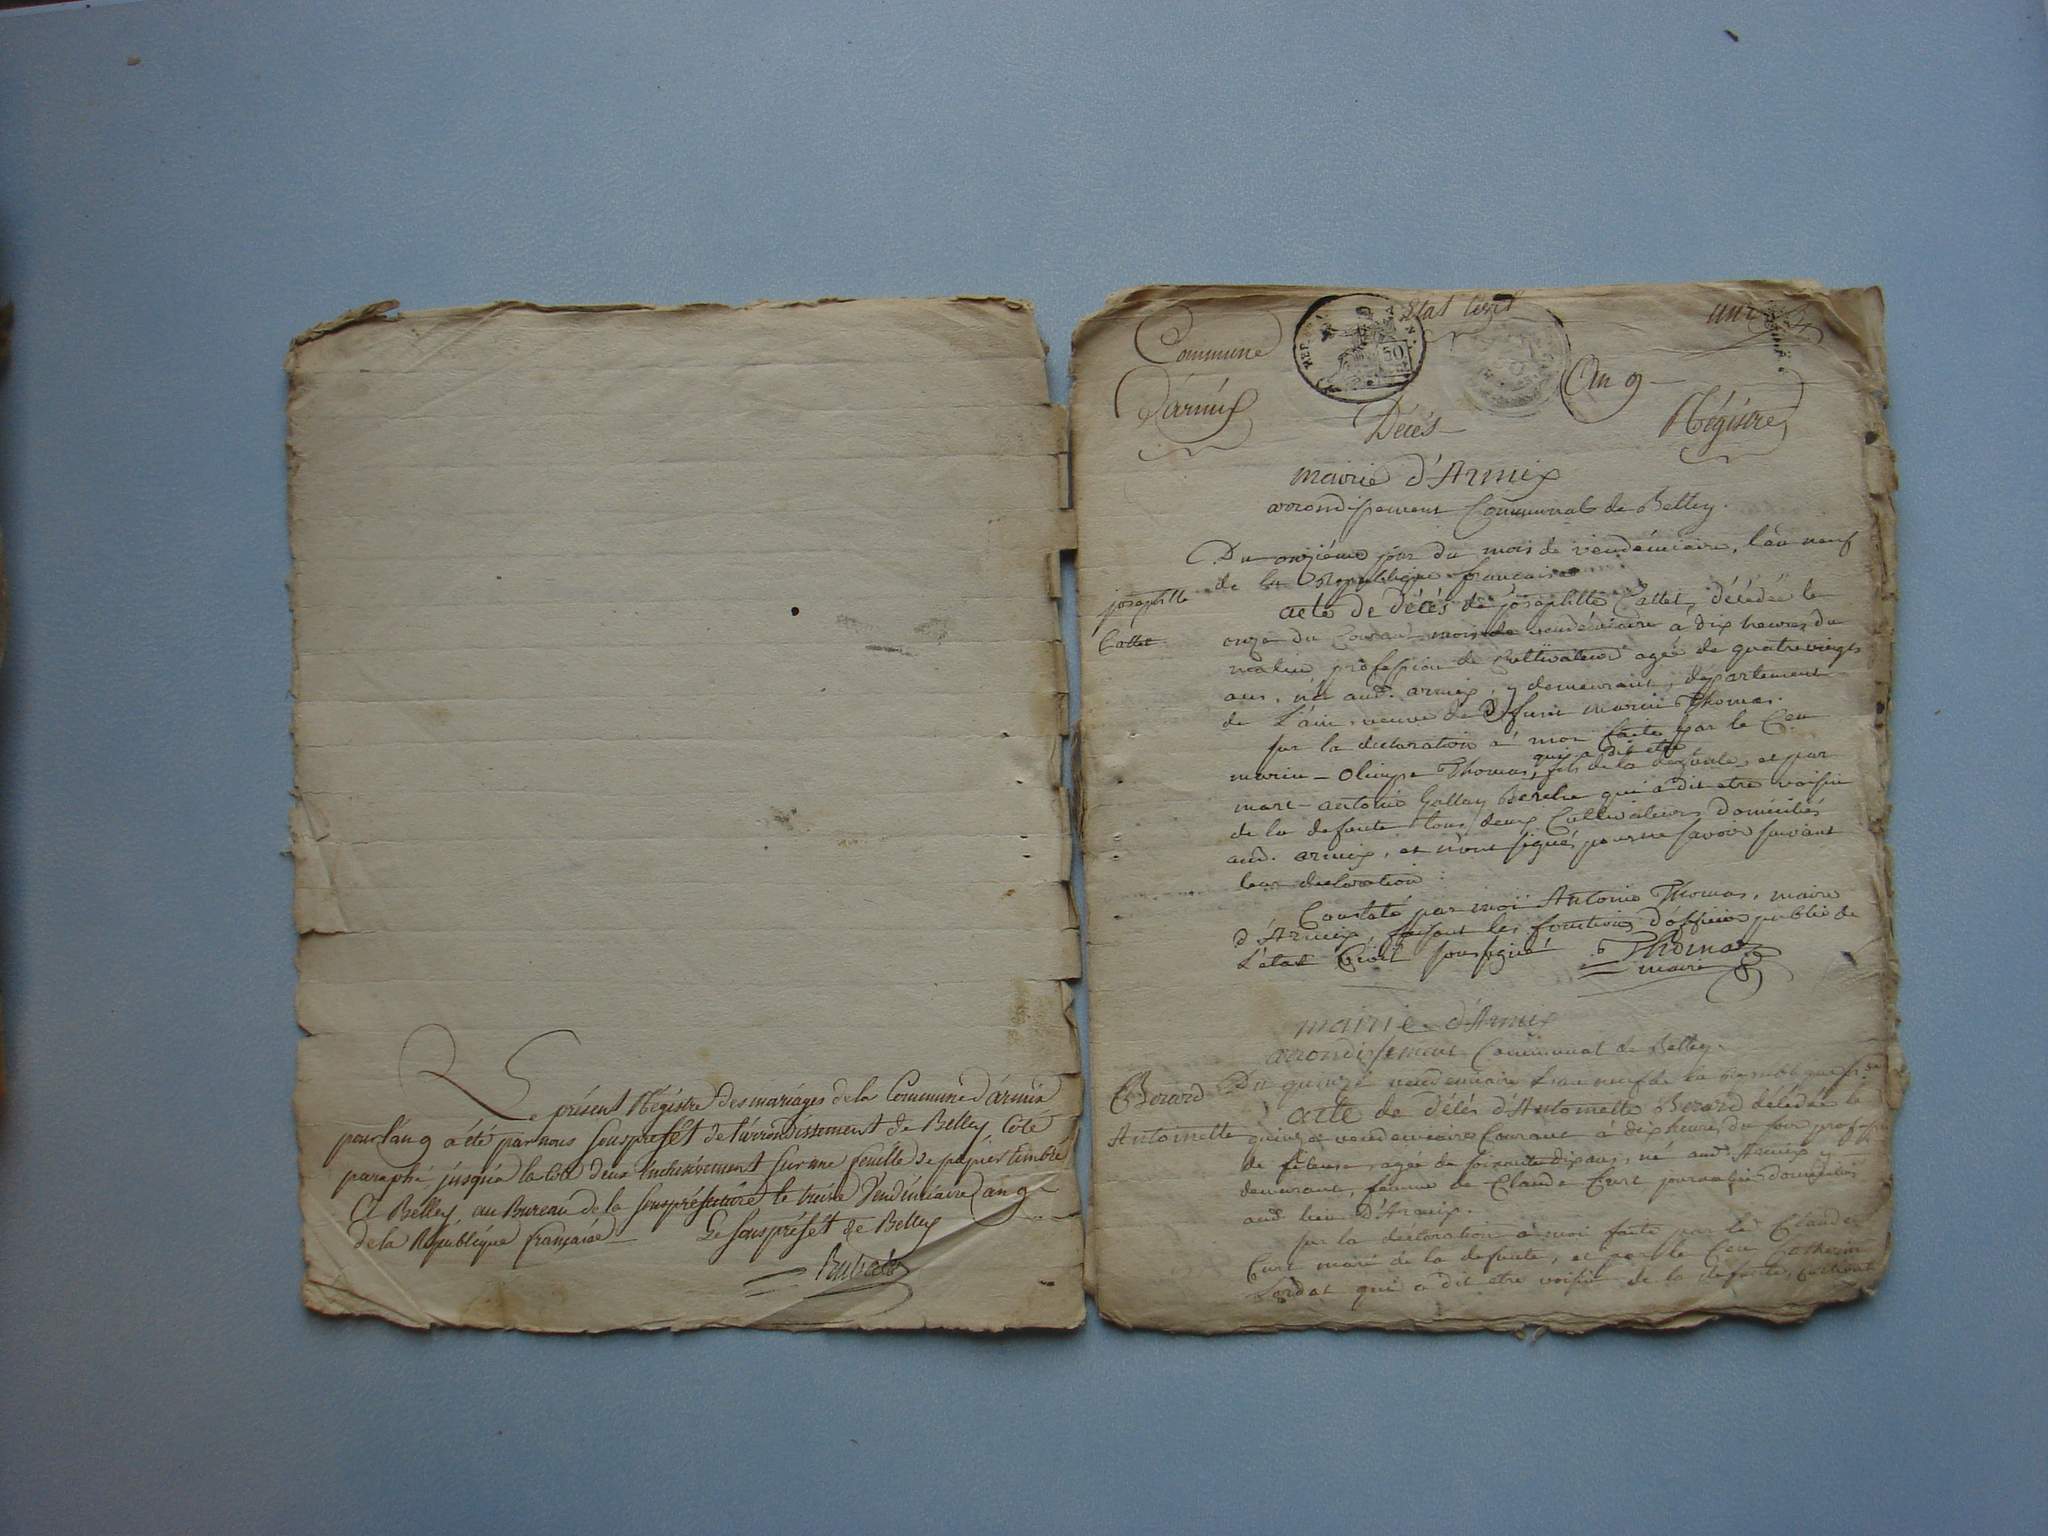 Le présent Régistre des mariages de la Commune d'armix
pour l'an 9 a été par nous souspréfét de l'arrondissement de Belley Coté
paraphé jusqu'a la cote deux inclusivement sur une feuille de papier timbré
A Belley au Bureau de la souspréfecture le treize Vendémiaire an 9
de la République française Le souspréfét de Belley
Etat Civil
une
Commune
D'armix
50
An 9
Décés
Régistre
mairie d'Armix
arrondissement Communal de Belley.
Du onziéme jour du mois de vendémiaire, l'an neuf
de la République française
josephtte
Cattet
acte de décés de josephtte Cattet, décédée le
onze du Courant mois de vendémiaire a dix heures du
matin profession de Cultivateur agée de quatrevingts
ans, née aud. armix, y demeurant, département
de L'ain, veuve de defunt marin Thomas.
sur la declaration a moi faite par le Cen
marin-olimpe Thomas, qui a dit etre fils de la defunte, et par
marc-antoine Gallay qui a dit etre voisin
de la defunte tous deux Cultivateurs domiciliés
aud. armix, et n'ont signés pour ne savoir suivant
leur declaration :
Constaté par moi Antoine Thomas, maire
d'Armix, faisant les fonctions d'officier public de
L'état Civil soussigné Thomas
maire
mairie d'Armix
arrondissement Communal de Belley.
Berard
Antoinette
Du quinze vendemiaire L'an neuf de la republique
acte de décés d'Antoinette Berard décédée le
quinze vendemiaire Courant à dix heures du soir
de fileuse, agée de soixante dix ans, né aud. Armix y
demeurant, femme de Claude Curt journalier domicilié
aud. lieu D'Armix.
sur la déclaration à moi faite par led. Claude
Curt mari de la defunte, et par le Cen
qui a dit etre voisin de la defunte,